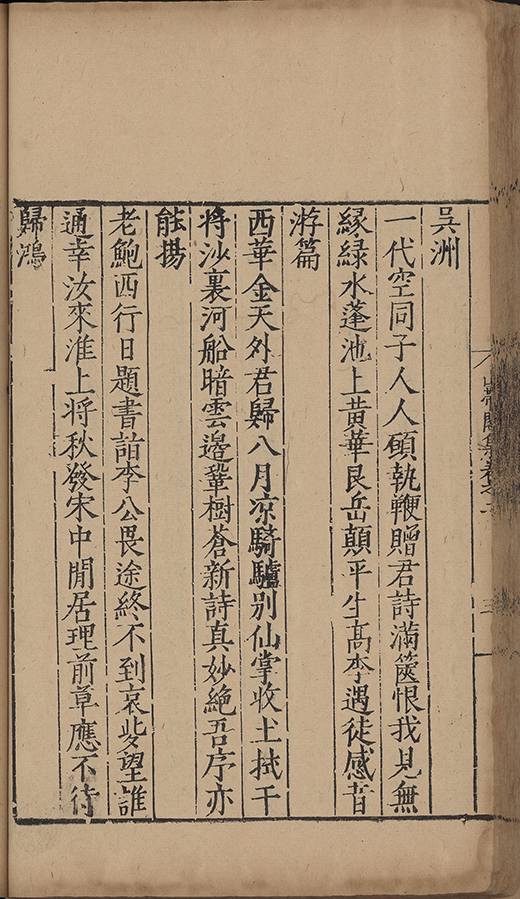 吳洲
一代空同子人人願執鞭贈君詩滿篋恨我見無
緣綠水蓬池上黃華艮岳顛平生高李遇徒感昔
游篇
西華金天外君歸八月凉騎驢別仙掌收土拭干
将沙裏河船暗雲邊鞏樹蒼新詩真妙絕吾序亦
能揚
老鮑西行日題書詣李公畏途終不到哀些望誰
通幸汝來淮上将秋發宋中閒居理前草應不待
歸鴻